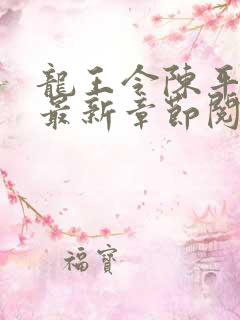 龍王令陳平
最新章節閱
福寶